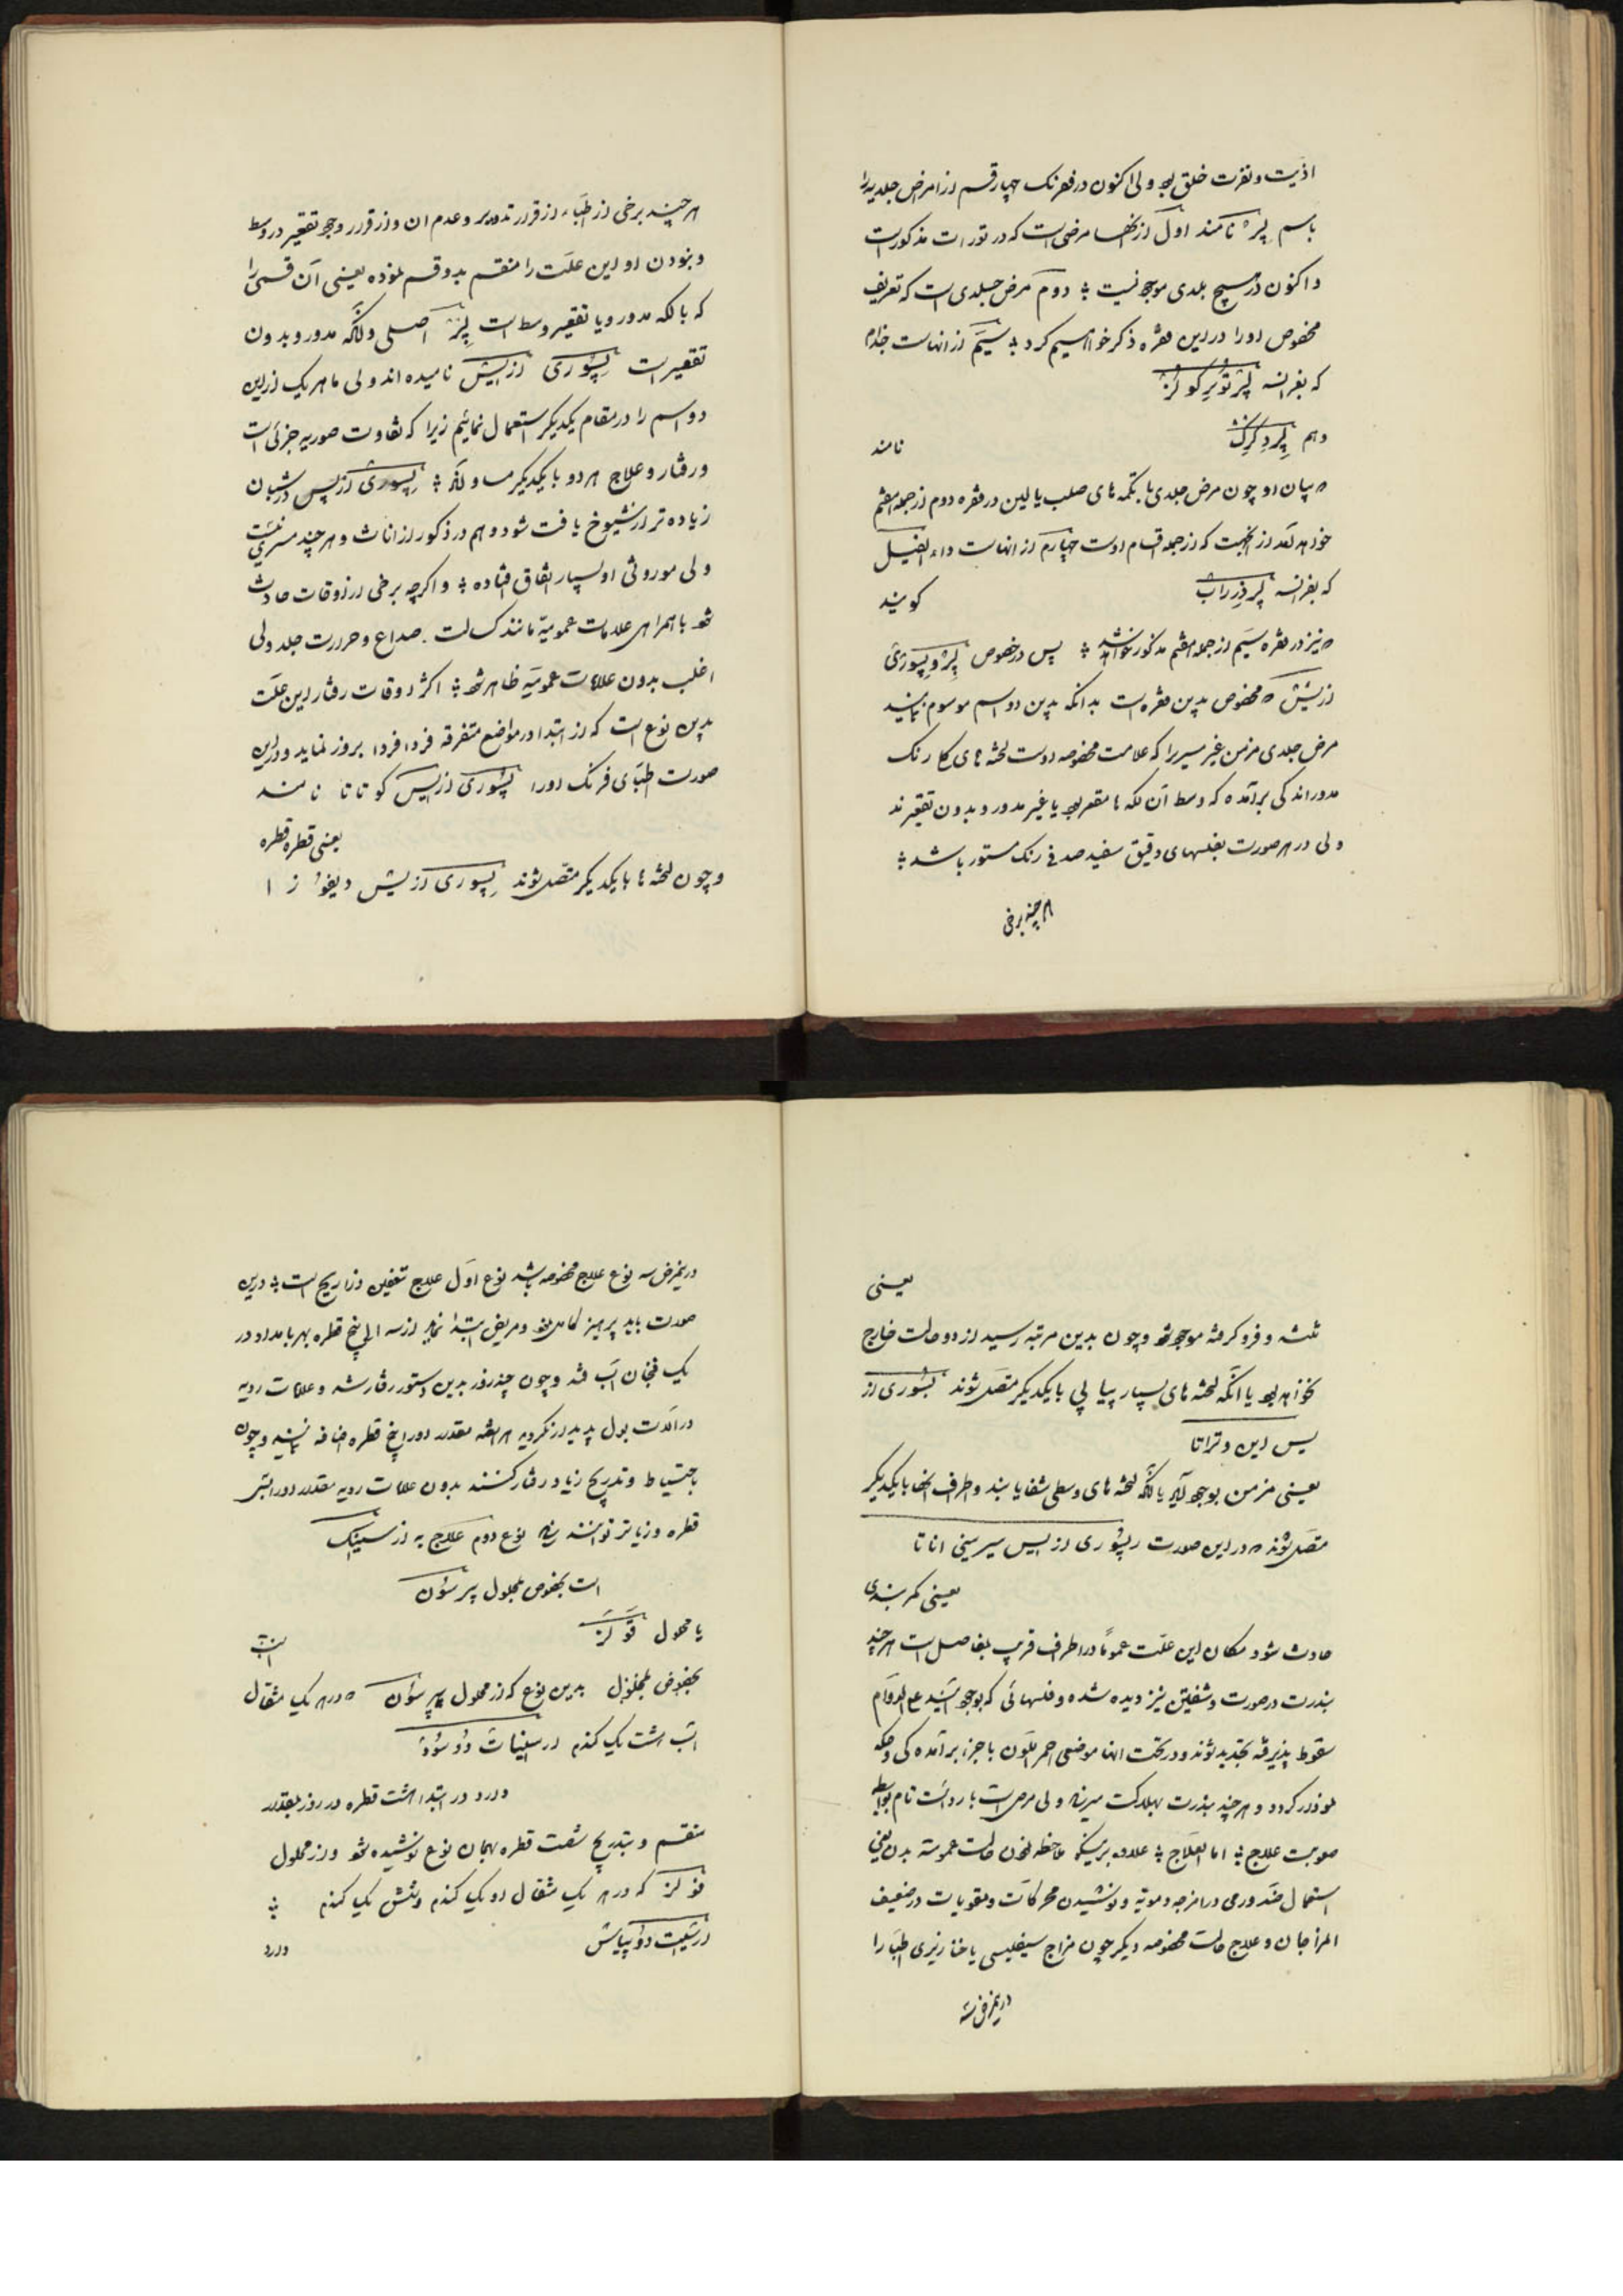 اذیت و نفرت خلق بود ولی اکنون در فرنگ چهار قسم از امراض جلدیه را
باسم لپر نامند اول از انها مرضی است که در تورات مذکور است
و اکنون در هیچ بلدی موجود نیست دوم مرض جلدی است که تعریف
مخصوص او را در این فقره ذکر خواهیم کرد سیم از انهاست جذام
که بفرانسه لپر توبرکولز
و هم لپر دگرک نامند
بیان او چون مرض جلدی با تکمه های صلب یا لین در فقره دوم از جمله هفتم
خواهد آمد از انجهت که از جمله اقسام اوست چهارم از انهاست داء الفیل
که بفرانسه لپر دزراب کویند
نیز در فقره سیم از جمله هفتم مذکور خواهد شد پس در خصوص لپر و پسوری
ازیس مخصوص بدین فقره است بدانکه بدین دو اسم موسوم نمایند
مرض جلدی مزمن غیر مسری را که علامت مخصوصه اوست لخته های کلا رنک
مدور اندکی برآمده که وسط آن لکه ها مقعر بود یا غیر مدور و بدون تقعیرند
ولی در هر صورت بفلسهای دقیق سفید صدفی رنک مستور باشد
هرچند برخی
هرچند برخی از اطباء از قرار تدویر و عدم ان و از قرار وجود تقعیر در وسط
و نبودن او این علت را منقسم بدو قسم نموده یعنی آن قسمی را
که با لکه مدور و با تقعیر وسط است لپر اصلی و انکه مدور و بدون
تقعیر است پسوری ازیس نامیده اند ولی ما هر یک از این
دو اسم را در مقام یکدیکر استعمال نمائیم زیرا که تفاوت صوریه جزئی است
و رفتار و علاج هر دو با یکدیکر مساو لکه پسوری ازیس در شبان
زیاده تر از شیوخ یافت شود و هم در ذکور از اناث و هرچند مسری نیست
ولی موروثی او بسیار اتفاق افتاده و اکرچه برخی از اوقات حادث
شود با همراهی علامات عمومیه مانند کسالت صداع و حرارت جلد ولی
اغلب بدون علامات عمومیه ظاهر شود اکثر اوقات رفتار این علت
بدین نوع است که از ابتدا در مواضع متفرقه فردا فردا بروز نماید و در این
صورت اطبای فرنک او را پسوری ازیس کوتاتا نامند
یعنی قطره قطره
و چون لخته ها با یکدیکر متصل شوند پسوری ازیس دیفوزا
یعنی
تشه و فرو کرفته موجود شود و چون بدین مرتبه رسید از دو حالت خارج
نخواهد بود یا انکه لخته های بسیار پیاپی با یکدیکر متصل شوند پسوری از
یس این وتراتا
یعنی مزمن بوجود آید یا انکه لخته های وسطی شفا یابند و اطراف انها با یکدیکر
متصل شوند در این صورت پسوری ازیس سیرسینی اناتا
یعنی کمربندی
حادث شود مکان این علت عموماً در اطراف قریب بمفاصل است هرچند
بندرت در صورت و شفتین نیز دیده شده و فلسهائی که بوجود آیند علی الدوام
سقوط پذیرفته تجدید شوند و در تحت انها موضعی احمر اللون با جزء برآمده کی و حکه
نمودار کردد و هرچند بندرت بهلاکت میرساند ولی مرض است با رداءت تام بواسطه
صعوبت علاج اما العلاج علاوه بر اینکه ملاحظه نمودن حالت عمومیه بدن یعنی
استعمال ضد ورمی در امزجه دمویه و نوشیدن محرکات و مقویات در ضعیف
المزاجان و علاج حالت مخصوصه دیکر چون مزاج سیفلیسی یا خنازیری اطبا را
در این مرض سه
در این مرض سه نوع علاج مخصوصه باشد نوع اول علاج تنفین دزاریح است در این
صورت باید پرهیز کامل نمود و مریض ابتدا نماید از سه الی پنج قطره بهر بامداد در
یک فنجان آب قند و چون چند روز بدین دستور رفتار شد و علامات ردیه
در آلات بول پدیدار نکردید هر هفته مقدار او را پنج قطره اضافه نمایند و چون
باحتیاط و تدریج زیاد رفتار کنند بدون علامات ردیه مقدار او را بسی
قطره و زیاتر توانند رساند نوع دوم علاج به ارسنیک
است بخصوص بمحلول پیرسون
یا محلول فولر است
بخصوص بمحلول بدین نوع که از محلول پیرسون در هر یک مثقال
آب هشت یک کندم ارسنیات دو سود
دارد در ابتدا هشت قطره در روز بمقدار
منقسم و بتدریج شصت قطره بهمان نوع نوشیده شود و از محلول
فولر که در هر یک مثقال او یک کندم و شش یک کندم
ارسنیت دو پتاس دارد